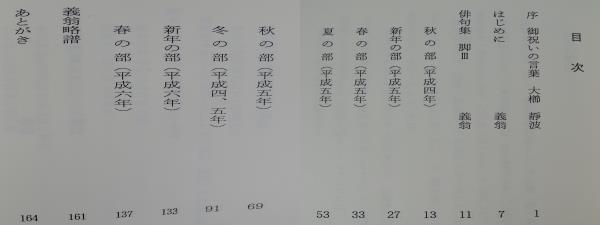 目次
序 御祝いの言葉 大櫛 靜波 1
はじめに 義翁 7
俳句集 脚Ⅲ 義翁 11
秋の部(平成四年) 13
新年の部(平成五年) 27
春の部(平成五年) 33
夏の部(平成五年) 53
秋の部(平成五年) 69
冬の部(平成四、五年) 91
新年の部(平成六年) 133
春の部(平成六年) 137
義翁略譜 161
あとがき 164